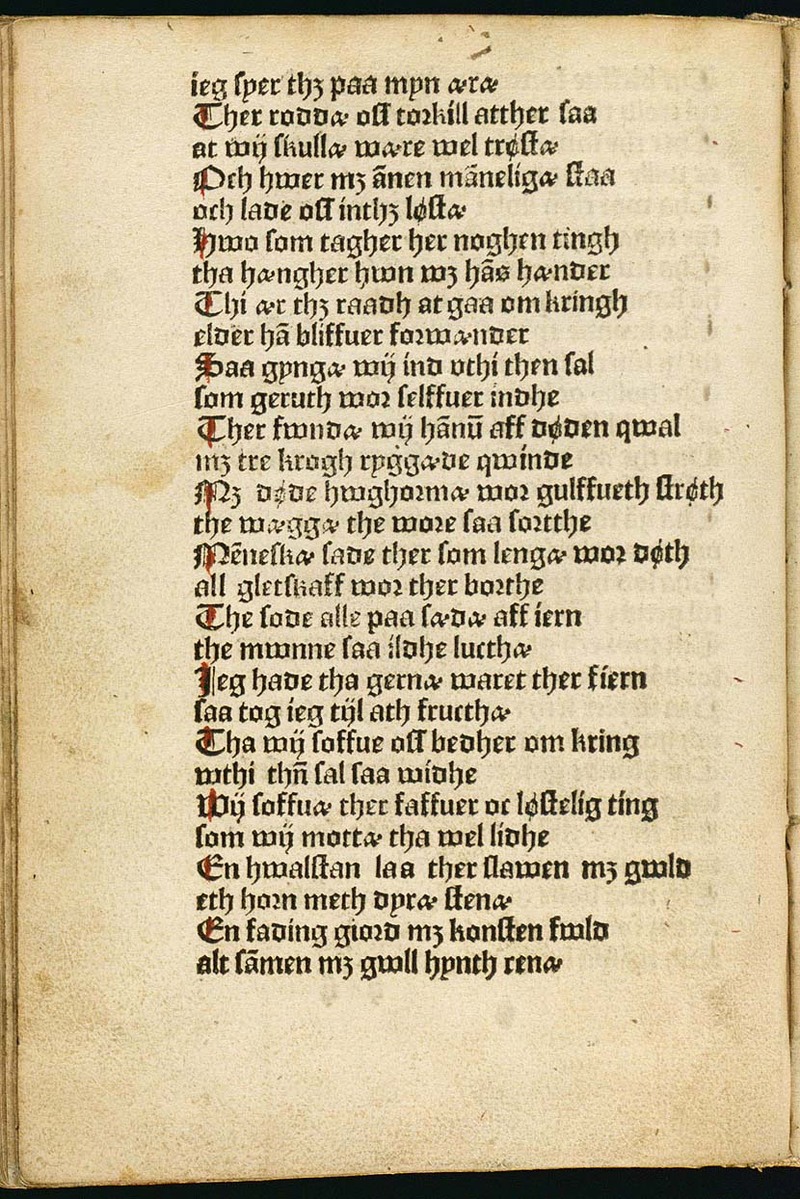 ieg syer thꝫ paa myn æræ
Ther roddæ oss torkill atther saa
at wij skullæ wære wel trøstæ
Och hwer mꝫ ānen māneligæ staa
och lade oss inthꝫ løstæ
Hwo som tagher her noghen tingh
tha hængher hwn wꝫ hās hænder
Thi ær thꝫ raadh at gaa om kringh
elder hā bliffuer forwænder
Saa gyngæ wij ind vthi then sal
som geruth wor selffuer indhe
Ther fwndæ wij hānū aff døden qwal
mꝫ tre krogh ryggæde qwinde
Mꝫ døde hwghormæ wor gulffueth strøth
the wæggæ the wore saa sortthe
Mēneskæ sade ther som lengæ wor døth
all gletskaff wor ther borthe
The sode alle paa sædæ aff iern
the mwnne saa ildhe lucthæ
Ieg hade tha gernæ waret ther fiern
saa tog ieg tijl ath fructhæ
Tha wij soffue oss bedher om kring
wthi thn̄ sal saa widhe
Wij soffuæ ther faffuer oc løstelig ting
som wij mottæ tha wel lidhe
En hwalstan laa ther slawen mꝫ gwld
eth horn meth dyræ stenæ
En fading giord mꝫ konsten fwld
alt sāmen mꝫ gwll hynth renæ